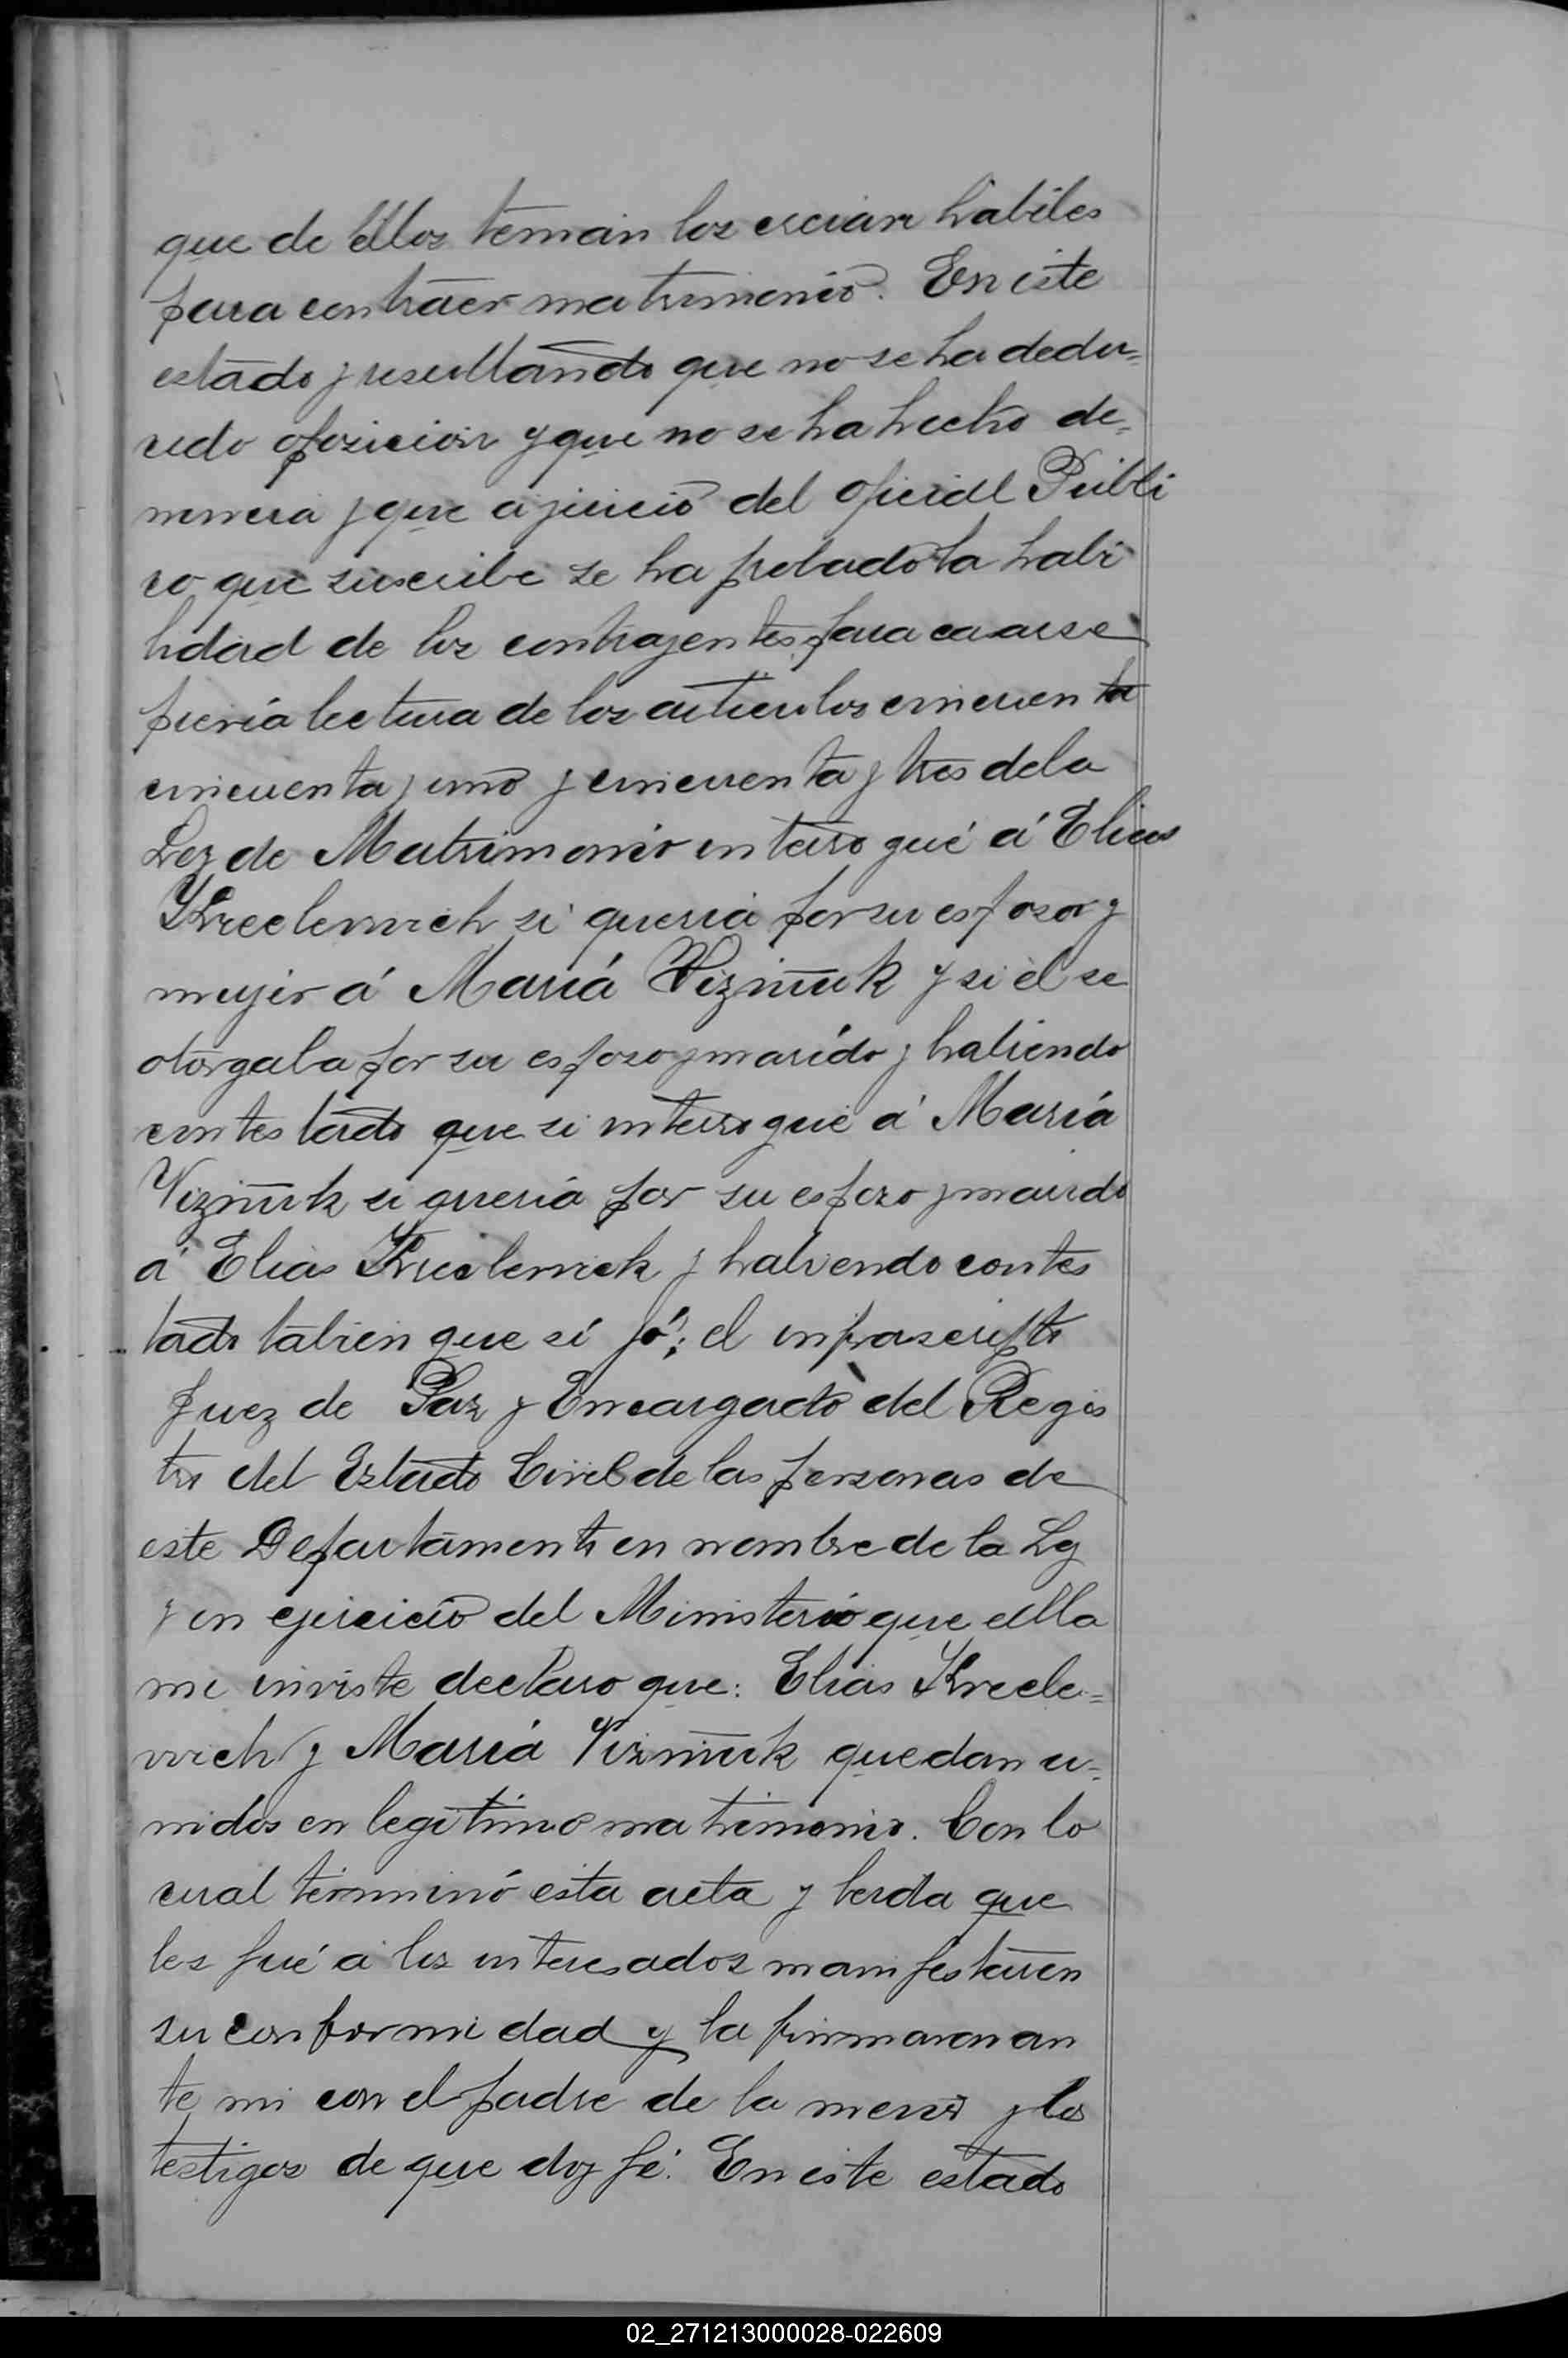 que de ellos tenian los crcian habiles
para contraer matrimonio. En este
estado y resultando que no se ha dedu=
cido oposicion y que no se ha hecho de=
nuncia y que a juicio del oficial Públi
co que suscribe se ha probado la habi
lidad de los contrayentes para casarse
previa lectura de los articulos cincuenta
cincuenta y uno y cincuenta y tres de la
Ley de Matrimonio interrogué á Elias
Kreelewich si queria por su esposa y
mujer á María Vizñuk y si él se
otorgaba por su esposo y marido y habiendo
contestado que si interrogué á María
Vizñuk si queria por su esposo y marido
á Elias Kreelewich y habiendo contes
tado tabien que sí yó; el infrascripto
Juez de Paz y Encargado del Regis
tro del Estado Civil de las personas de
este Departamento en nombre de la Ley
y en ejercicio del Ministerio que ella
me inviste declaro que: Elias Kreele=
wich y María Vizñuk quedan u=
nidos en legitimo matrimonio. Con lo
cual terminó esta acta y leida que
les fué a los interesados manifestaron
su conformidad y la firmaron an
te mi con el padre de la menor y los
testigos de que doy fé. En este estado
02_271213000028-022609